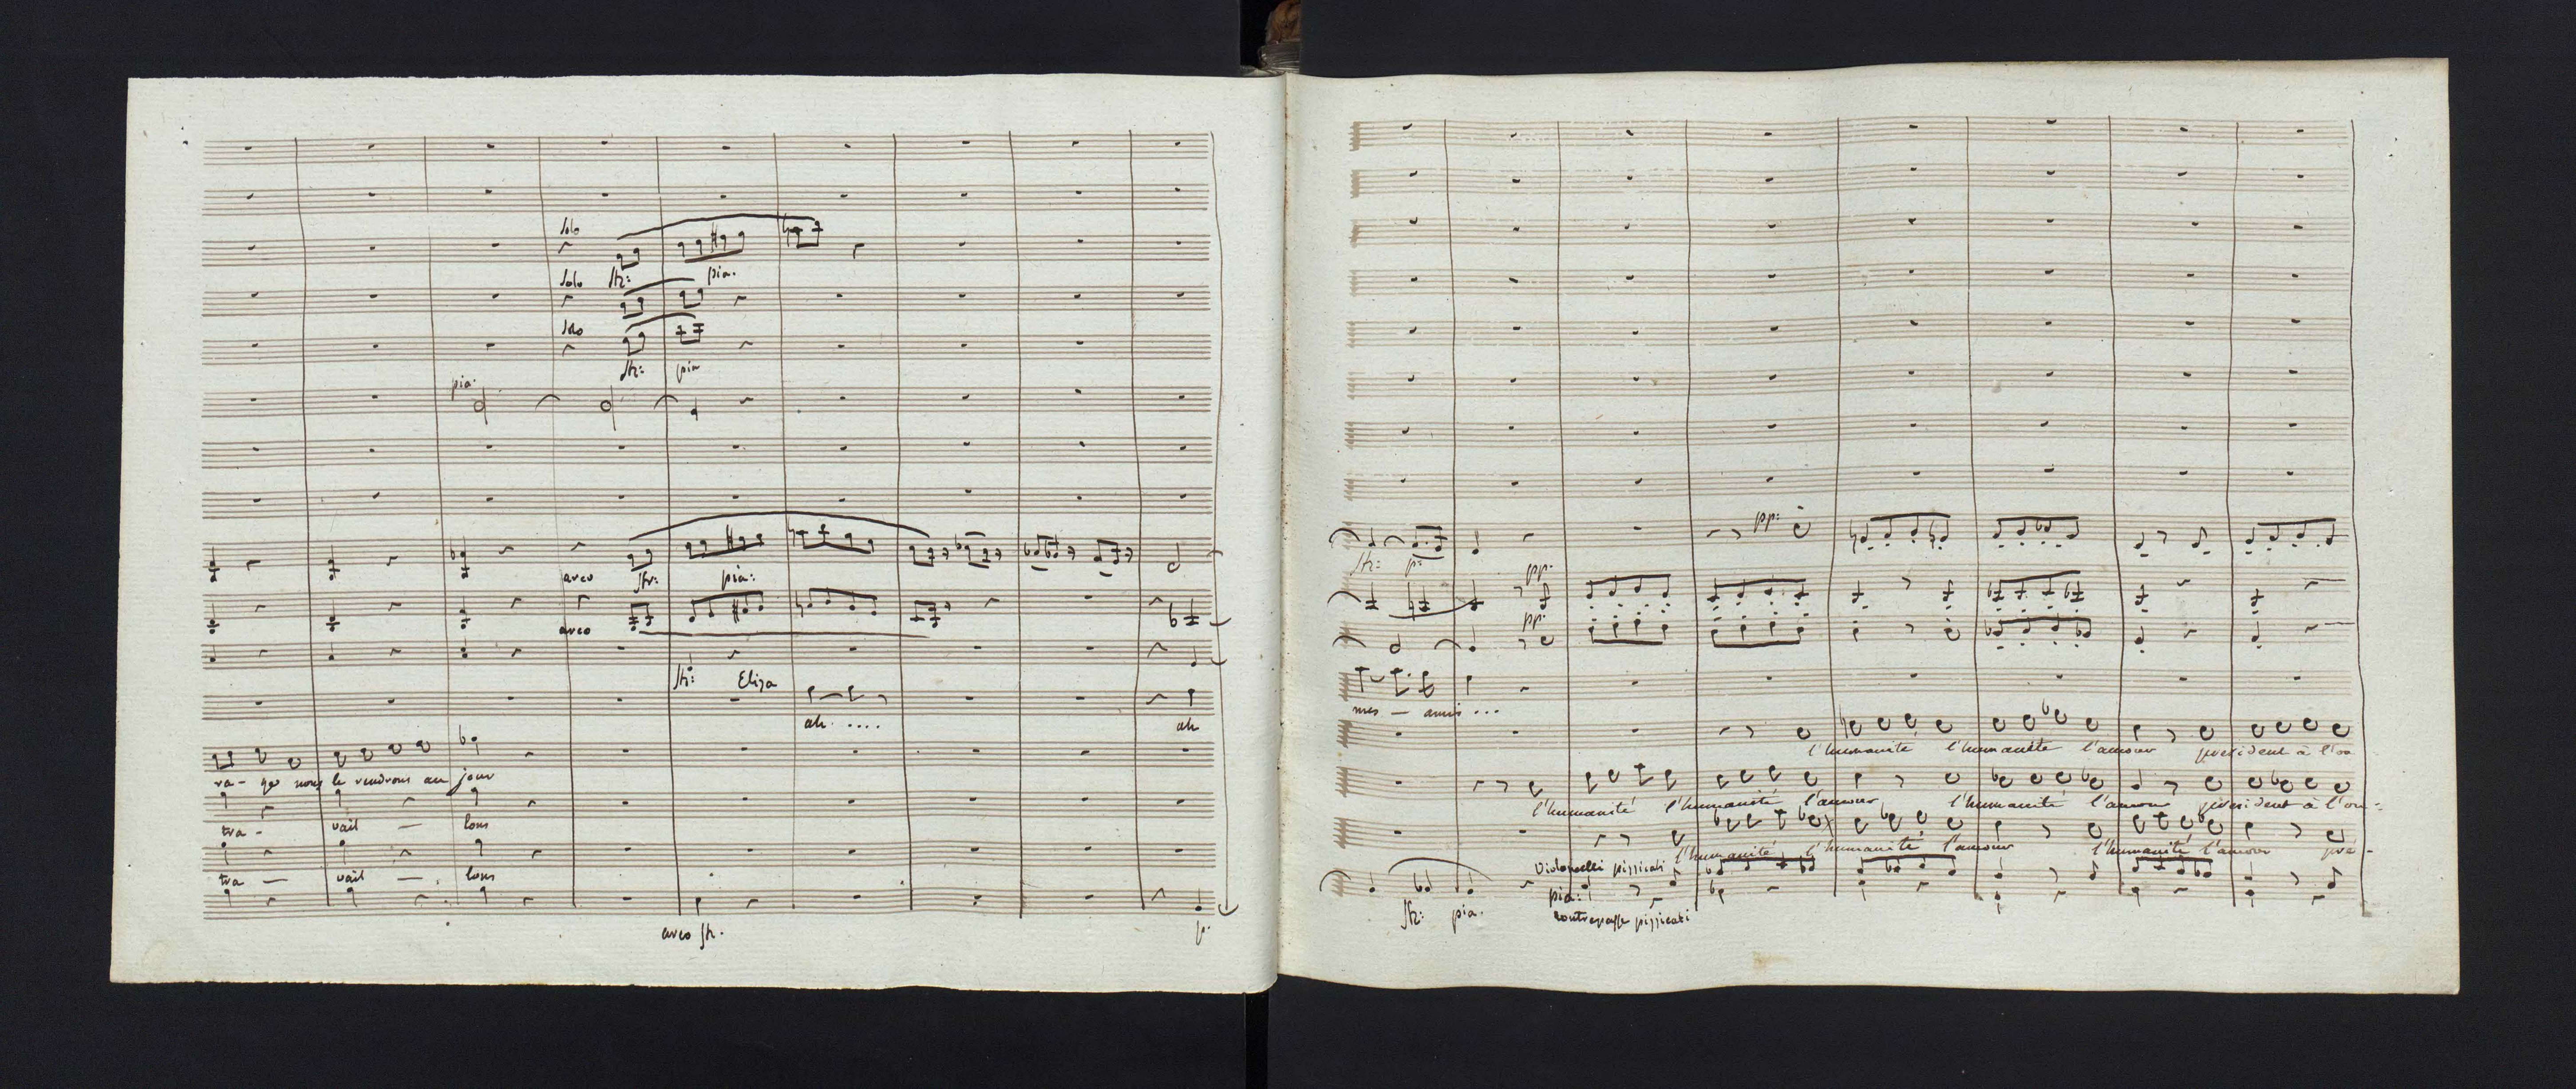 Solo
Solo str: pia.
Solo
str: pia
pia.
arco str: pia:
arco
str: Eliza
ah .... ah
ra - ge nous le rendrons au jour
tra - vail — lons
tra — vail — lons
arco str. p.
pp:
str: p: pp.
pp.
mes — amis ...
l'humanité l'humanité l'amour president à l'ou
l'humanité l'humanité l'amour l'humanité l'amour president à l'ou -
l'humanité l'humanité l'amour l'humanité l'amour pré -
Violoncelli pizzicati
pia:
str: pia. contrepasse pizzicati